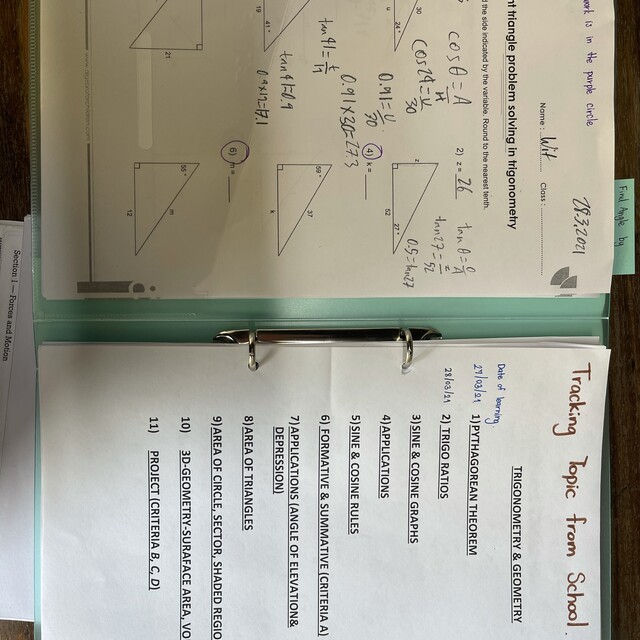 work is in the purple circle
Find Angle by
28.3.2021
Name : Wit
Class :
nt triangle problem solving in trigonometry
d the side indicated by the variable. Round to the nearest tenth.
30
24°
u
cosθ = A
30
0.91 = u
30
0.91 x 30 = 27.3
2) z = 26
z
27°
52
tan θ = O
A
tan 27 = z
52
0.5 = tan 27
19
41°
tan 41 = t
19
tan 41 = 0.9
0.9 x 19 = 17.1
4) k =
59°
37
k
21
6) m =
55°
m
12
Tracking Topic from School.
TRIGONOMETRY & GEOMETRY
Date of learning
27/03/21 1)PYTHAGOREAN THEOREM
28/03/21 2) TRIGO RATIOS
3)SINE & COSINE GRAPHS
4)APPLICATIONS
5)SINE & COSINE RULES
6) FORMATIVE & SUMMATIVE (CRITERIA A)
7)APPLICATIONS (ANGLE OF ELEVATION&
DEPRESSION)
8)AREA OF TRIANGLES
9)AREA OF CIRCLE, SECTOR, SHADED REGIO
10) 3D-GEOMETRY-SURAFACE AREA, VO
11) PROJECT (CRITERIA B, C, D)
Section 1 — Forces and Motion